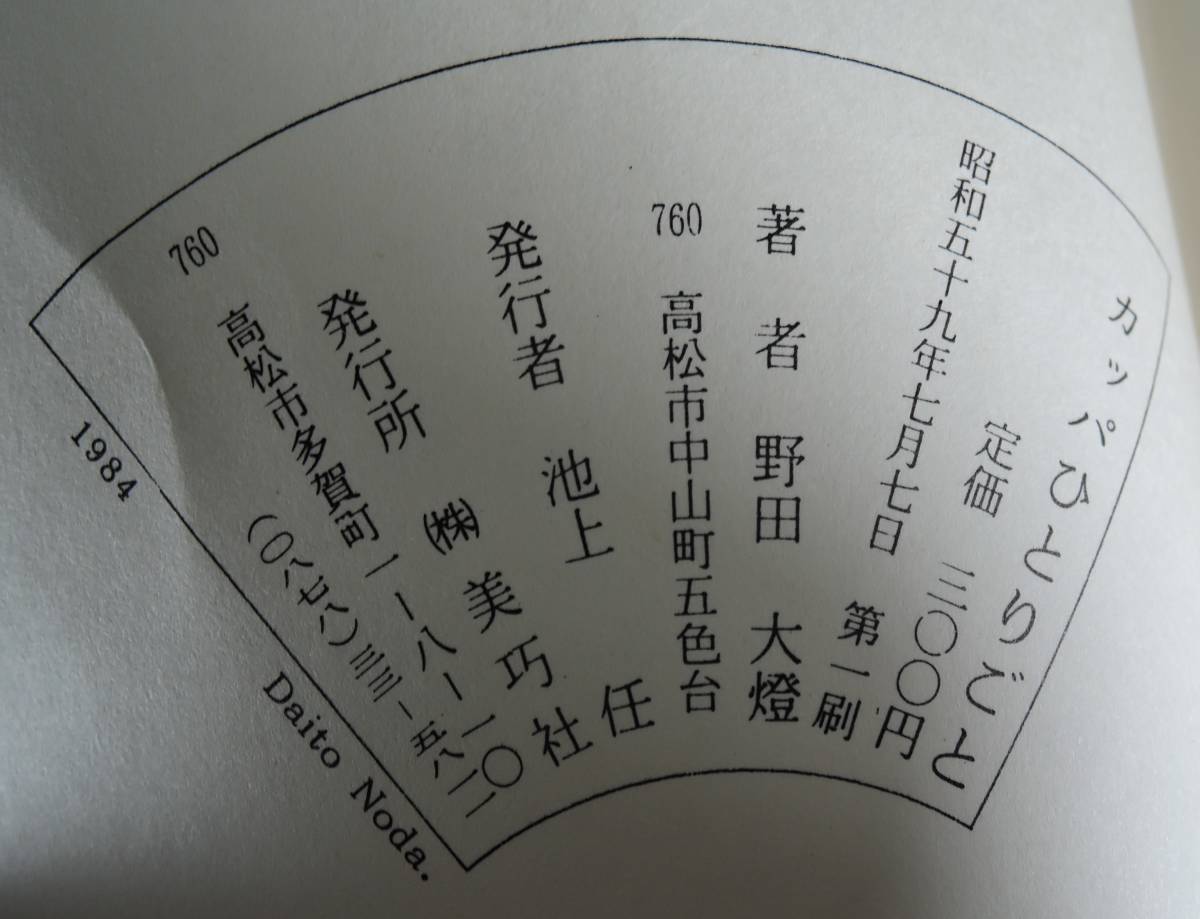 カッパひとりごと
定価 三〇〇円
昭和五十九年七月七日 第一刷
著者 野田 大燈
760 高松市中山町五色台
発行者 池上 任
発行所 ㈱美巧社
760 高松市多賀町一ー八ー一〇
(〇八七八)三三ー五八一一
1984 Daito Noda.